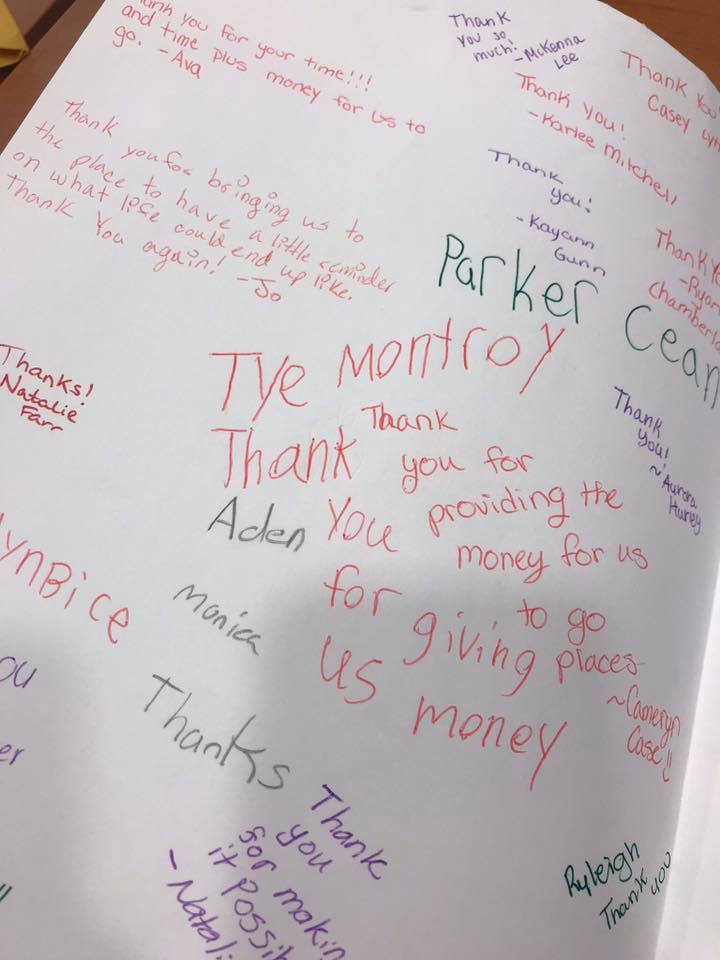 Thank you for your time!!!
and time plus money for us to
go. -Ava
Thank
you so
much!
-McKenna
Lee
Thank You!
Casey
Thank You!
-Karlee Mitchell
Thank you for bringing us to
the place to have a little reminder
on what life could end up like.
Thank You again! -Jo
Thank
you!
-Kayann
Gunn
Thank
-Ryan
Parker Cean
Thanks!
Natalie
Farr
Tye Montroy
Thank
you!
~Aurora
Hurley
Thank
You
for
giving
us money
Thank
you for
providing the
money for us
to go
places
~Cameryn
Case!!
Aden
Bice
Monica
Thanks
Thank
you
for making
it possib
-Natali
Ryleigh
Thank you